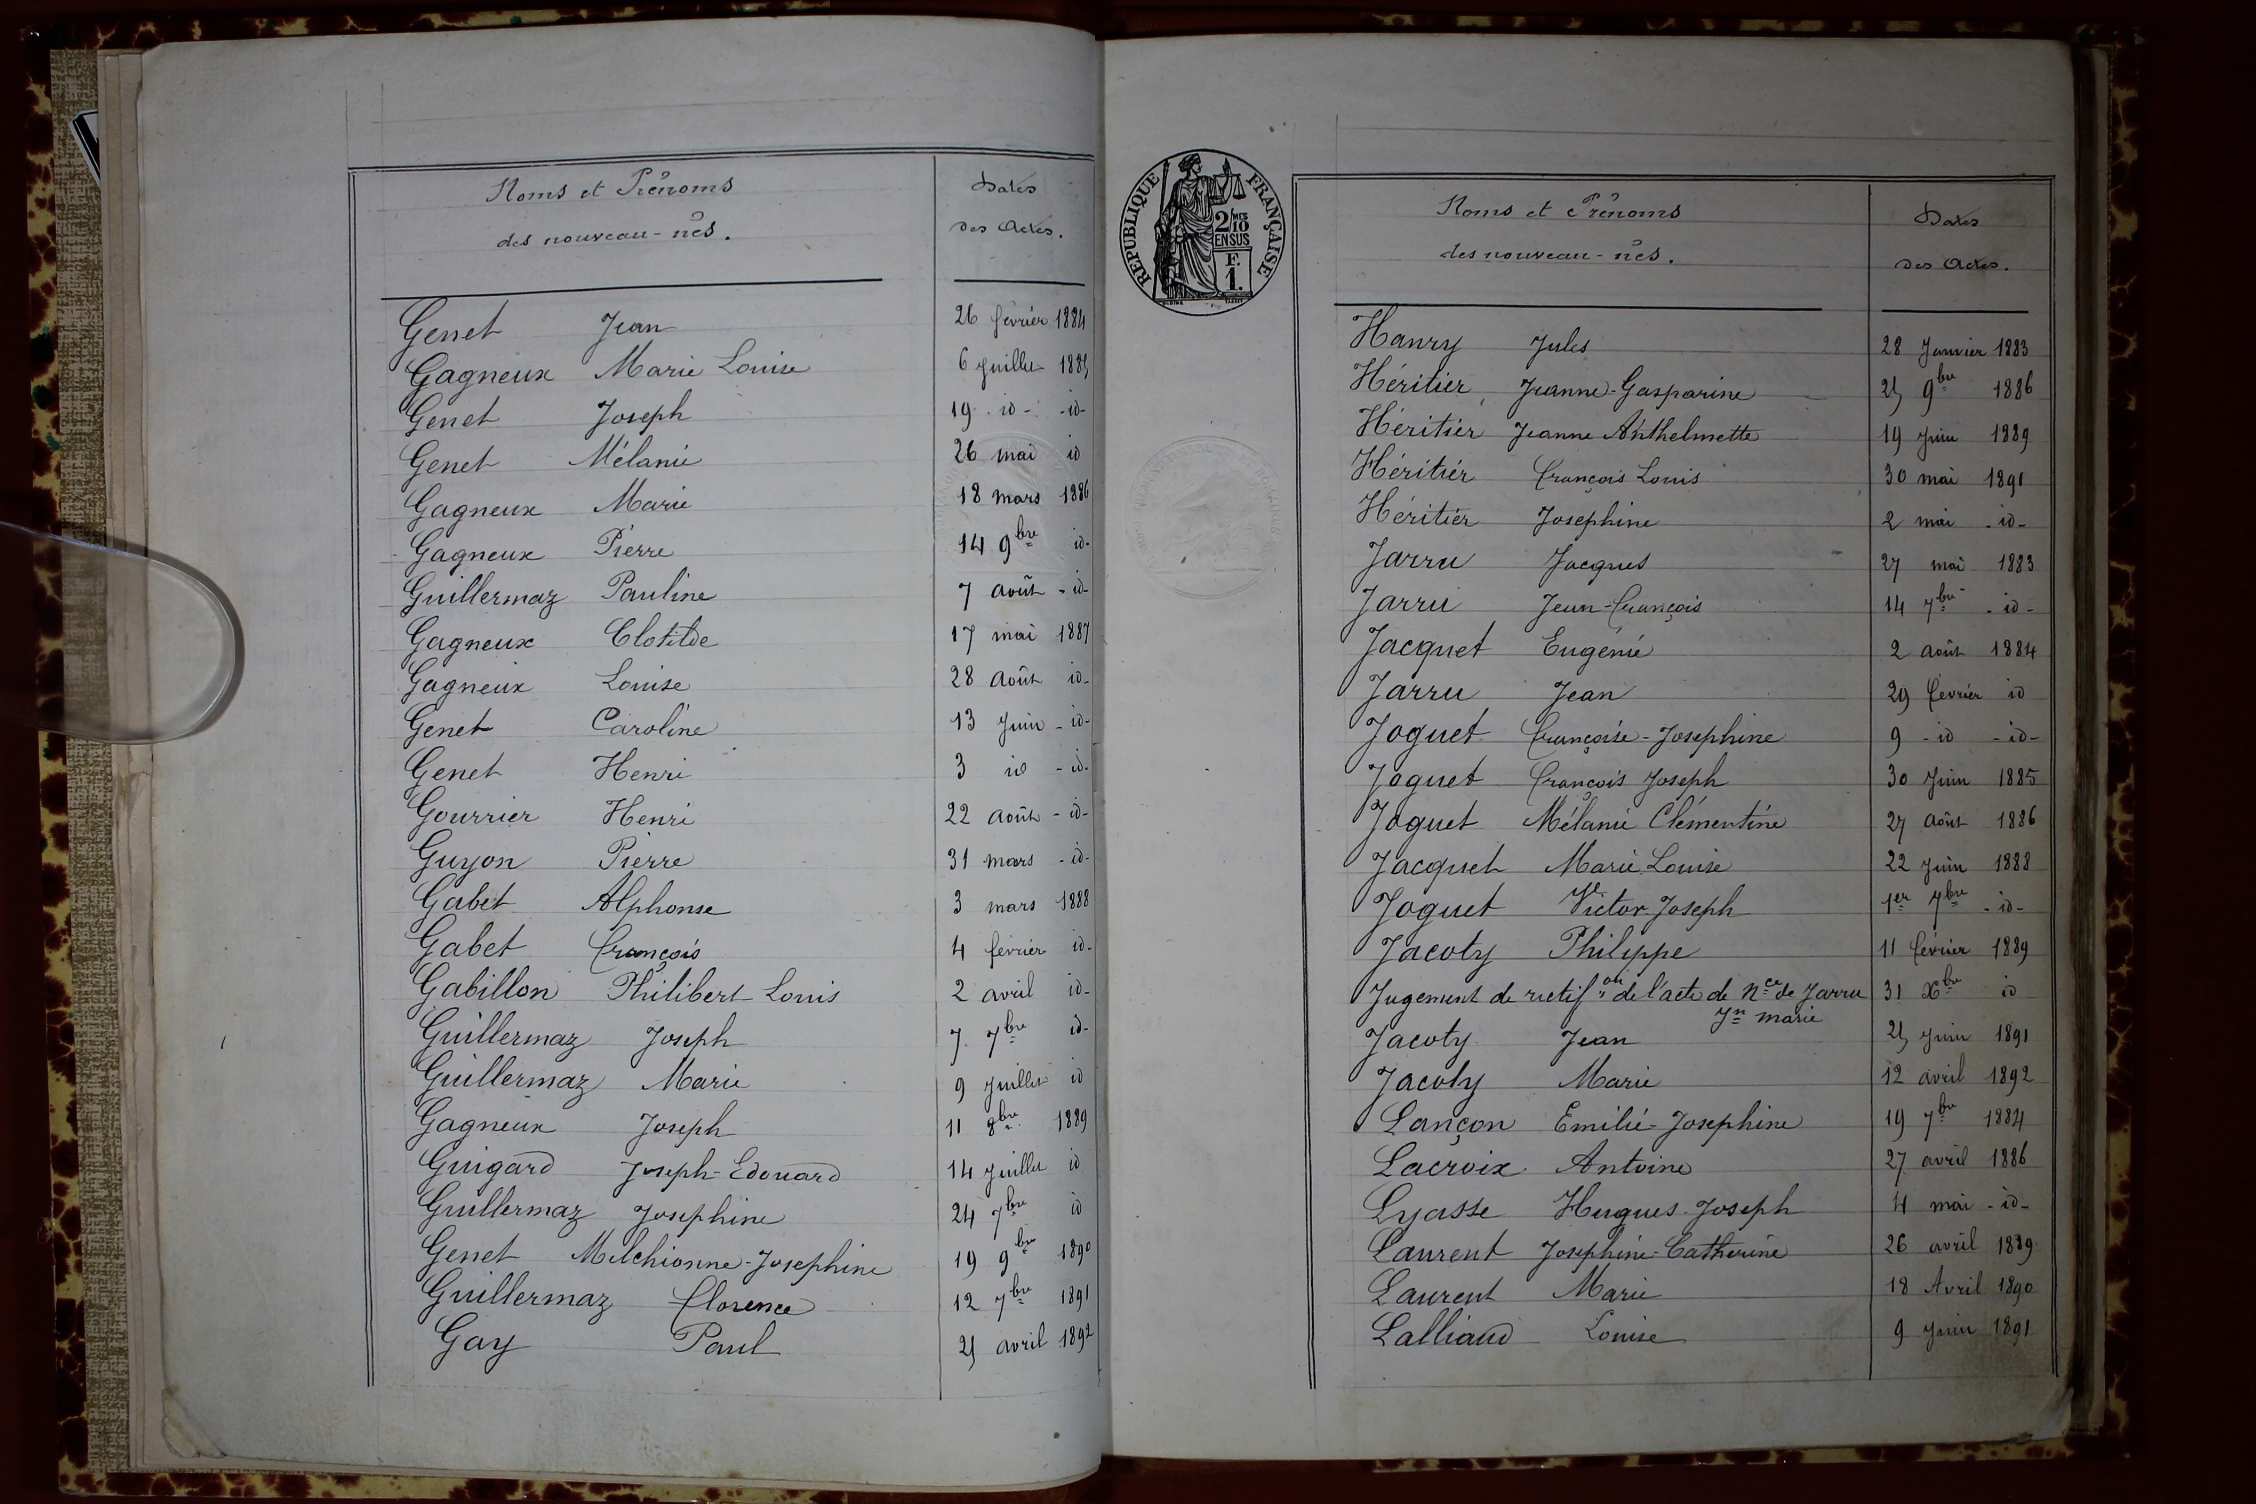 Noms et Prénoms Dates
des nouveau-nés. des Actes.
Genet Jean 26 février 1884
Gagneux Marie Louise 6 juillet 1885
Genet Joseph 19 - id - - id -
Genet Mélanie 26 mai id
Gagneux Marie 18 mars 1886
Gagneux Pierre 14 9bre id -
Guillermaz Pauline 7 août - id -
Gagneux Clotilde 17 mai 1887
Gagneux Louise 28 Août id -
Genet Caroline 13 Juin - id -
Genet Henri 3 id - id -
Gourrier Henri 22 Août - id -
Guyon Pierre 31 mars - id -
Gabet Alphonse 3 mars 1888
Gabet François 4 février id -
Gabillon Philibert Louis 2 avril id -
Guillermaz Joseph 7 7bre id -
Guillermaz Marie 9 juillet id
Gagneux Joseph 11 8bre 1889
Guigard Joseph-Edouard 14 juillet id
Guillermaz Josephine 24 7bre id
Genet Milchionne-Josephine 19 9bre 1890
Guillermaz Florence 12 7bre 1891
Gay Paul 25 avril 1892
REPUBLIQUE FRANÇAISE
2/10 MES
EN SUS
F.
1.
Noms et Prénoms Dates
des nouveau-nés. des Actes.
Hanry Jules 28 Janvier 1883
Héritier Jeanne-Gasparine 25 9bre 1886
Héritier Jeanne Anthelmette 19 Juin 1889
Héritier François Louis 30 mai 1891
Héritier Josephine 2 mai - id -
Jarru Jacques 27 mai 1883
Jarru Jean-François 14 7bre - id -
Jacquet Eugénie 2 août 1884
Jarru Jean 29 février id
Joguet Françoise-Josephine 9 - id - id -
Joguet François Joseph 30 Juin 1885
Joguet Mélanie Clémentine 27 Août 1886
Jacquet Marie Louise 22 Juin 1888
Joguet Victor Joseph 1er 7bre - id -
Jacoty Philippe 11 février 1889
Jugement de rectifon de l'acte de Nce de Jarru 31 Xbre id
Jn marie
Jacoty Jean 25 Juin 1891
Jacoty Marie 12 avril 1892
Lançon Emilie-Josephine 19 7bre 1884
Lacroix Antoine 27 avril 1886
Lyasse Hugues Joseph 4 mai - id -
Laurent Josephine-Catherine 26 avril 1889
Laurent Marie 18 Avril 1890
Lalliand Louise 9 Juin 1891